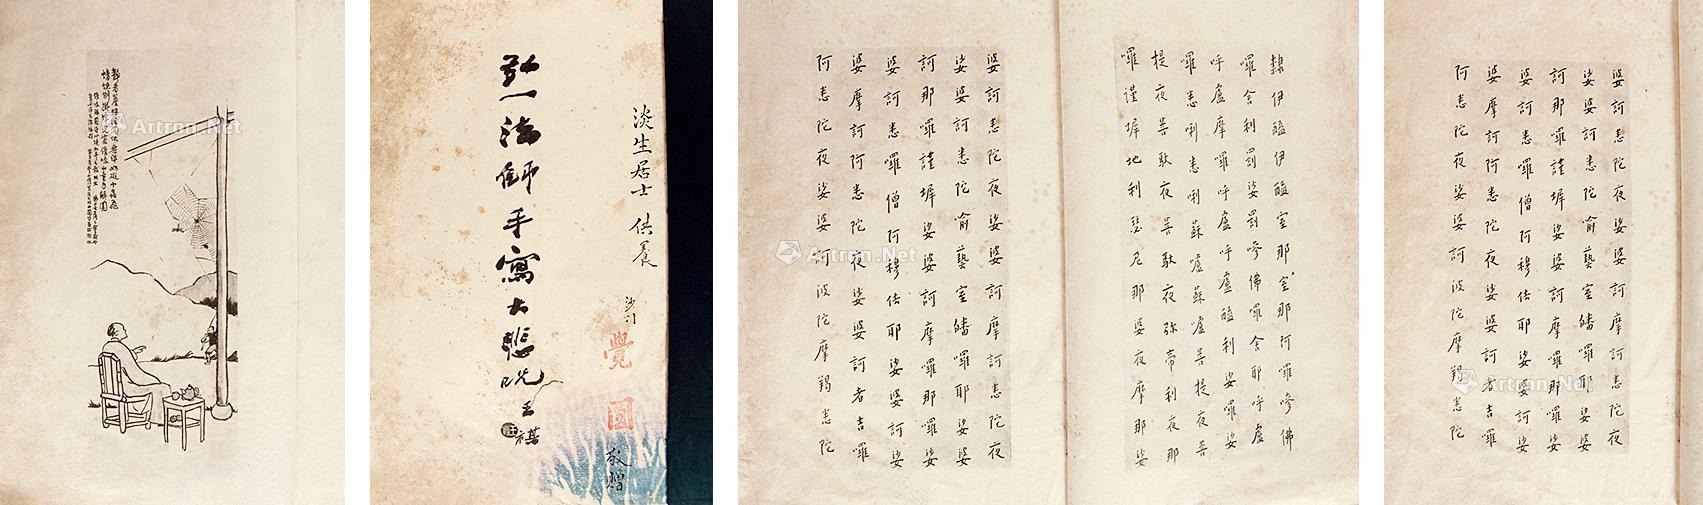 靜看簷蛛結網低無端妨礙小蟲飛
蜻蜓倒掛蜂兒窘催喚山童為解圍
淡生居士 供養
弘一法師手寫大悲咒 王祺
沙門 覺圓 敬贈
隸伊醯伊醯室那室那阿囉嘇佛
囉舍利罰娑罰嘇佛囉舍耶呼盧
呼盧摩囉呼盧呼盧醯利娑囉娑
囉悉唎悉唎蘇嚧蘇嚧菩提夜菩
提夜菩馱夜菩馱夜弥帝利夜那
囉謹墀地利瑟尼那婆夜摩那娑
婆訶悉陀夜娑婆訶摩訶悉陀夜
娑婆訶悉陀喻藝室皤囉耶娑婆
訶那囉謹墀娑婆訶摩囉那囉娑
婆訶悉囉僧阿穆佉耶娑婆訶娑
婆摩訶阿悉陀夜娑婆訶者吉囉
阿悉陀夜娑婆訶波陀摩羯悉陀
婆訶悉陀夜娑婆訶摩訶悉陀夜
娑婆訶悉陀喻藝室皤囉耶娑婆
訶那囉謹墀娑婆訶摩囉那囉娑
婆訶悉囉僧阿穆佉耶娑婆訶娑
婆摩訶阿悉陀夜娑婆訶者吉囉
阿悉陀夜娑婆訶波陀摩羯悉陀
Artron.Net
Artron.Net
Artron.Net